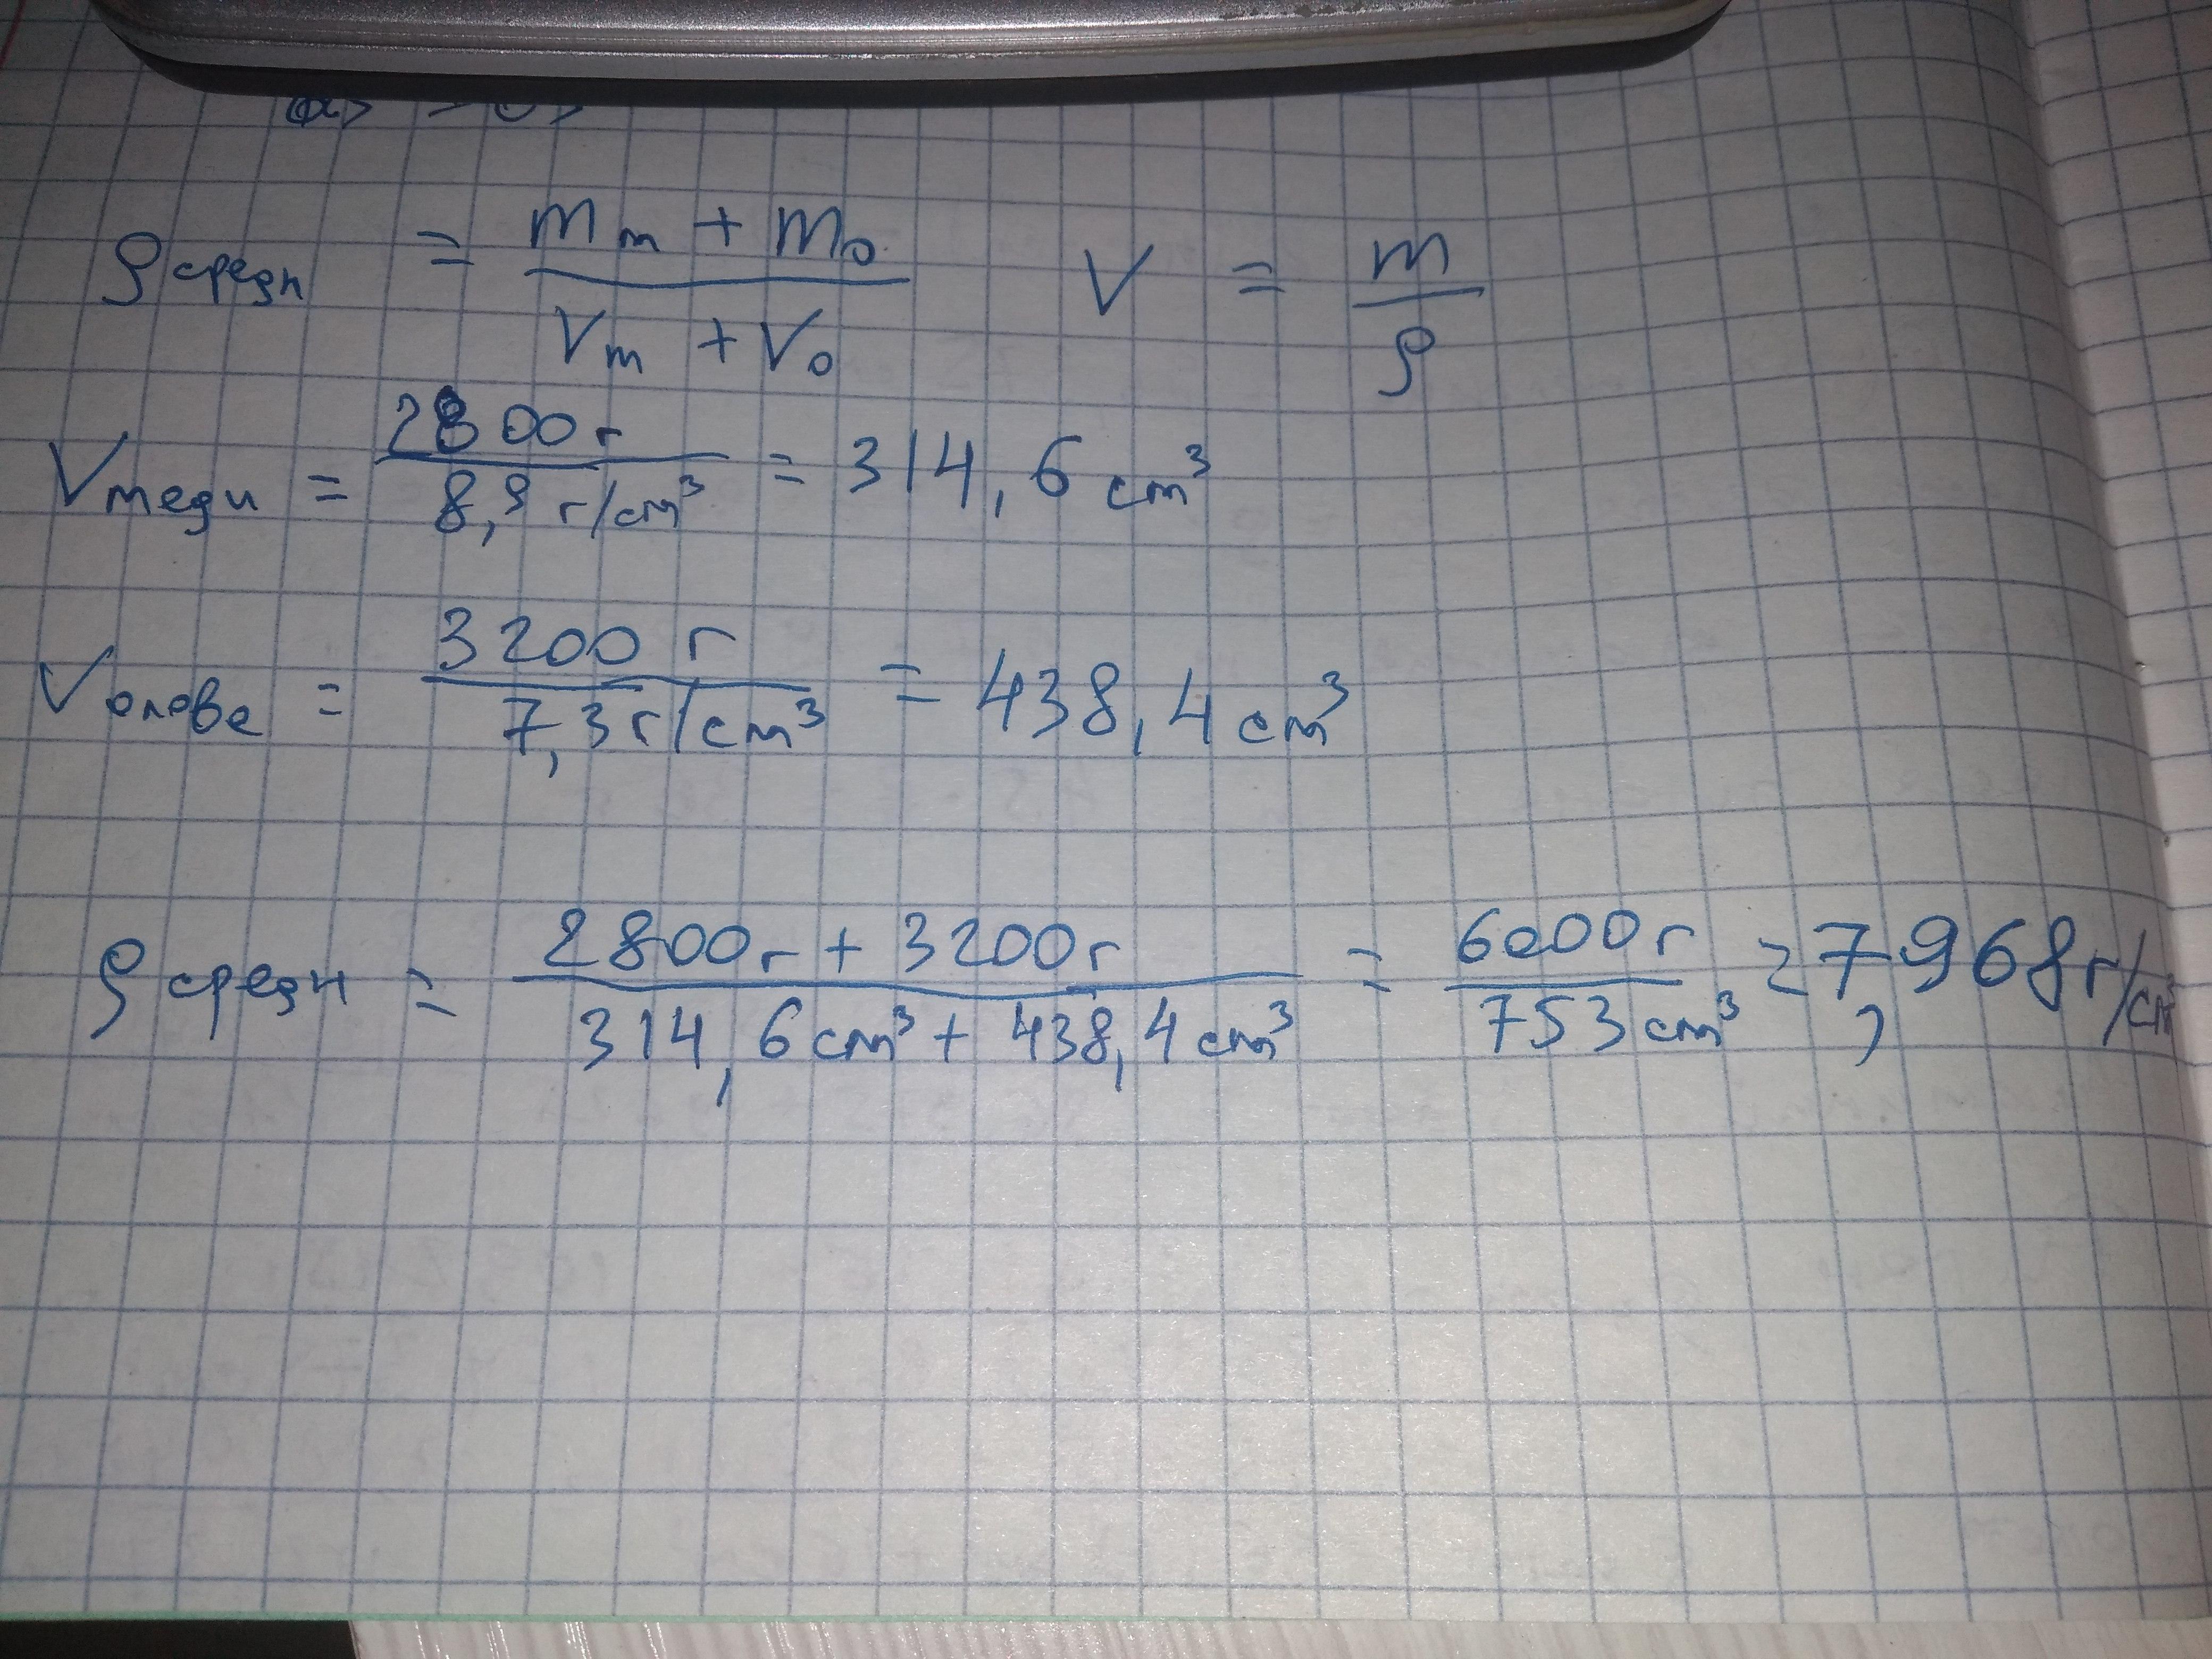 ρ средн = (m м + m о) / (V м + V о)   V = m / ρ
V меди = 2800 г / 8,9 г/см³ = 314,6 см³
V олова = 3200 г / 7,3 г/см³ = 438,4 см³
ρ средн = (2800 г + 3200 г) / (314,6 см³ + 438,4 см³) = 6000 г / 753 см³ = 7,968 г/см³